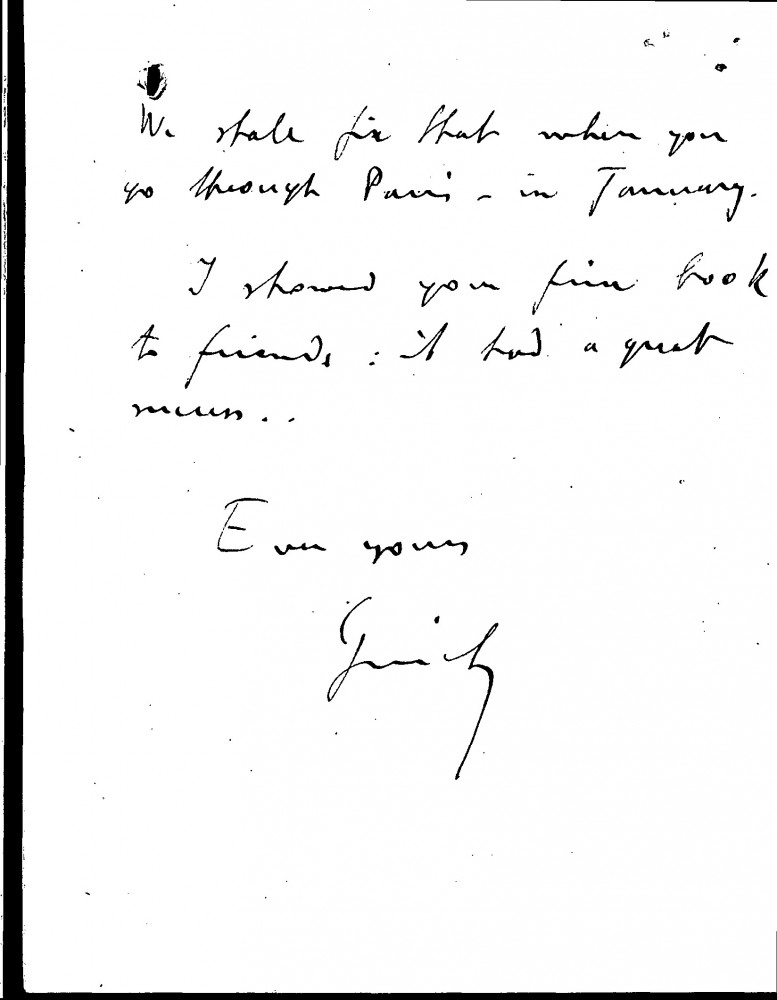 We shall fix that when you
go through Paris - in January.
I showed your fine book
to friends : it had a great
success..
Ever yours